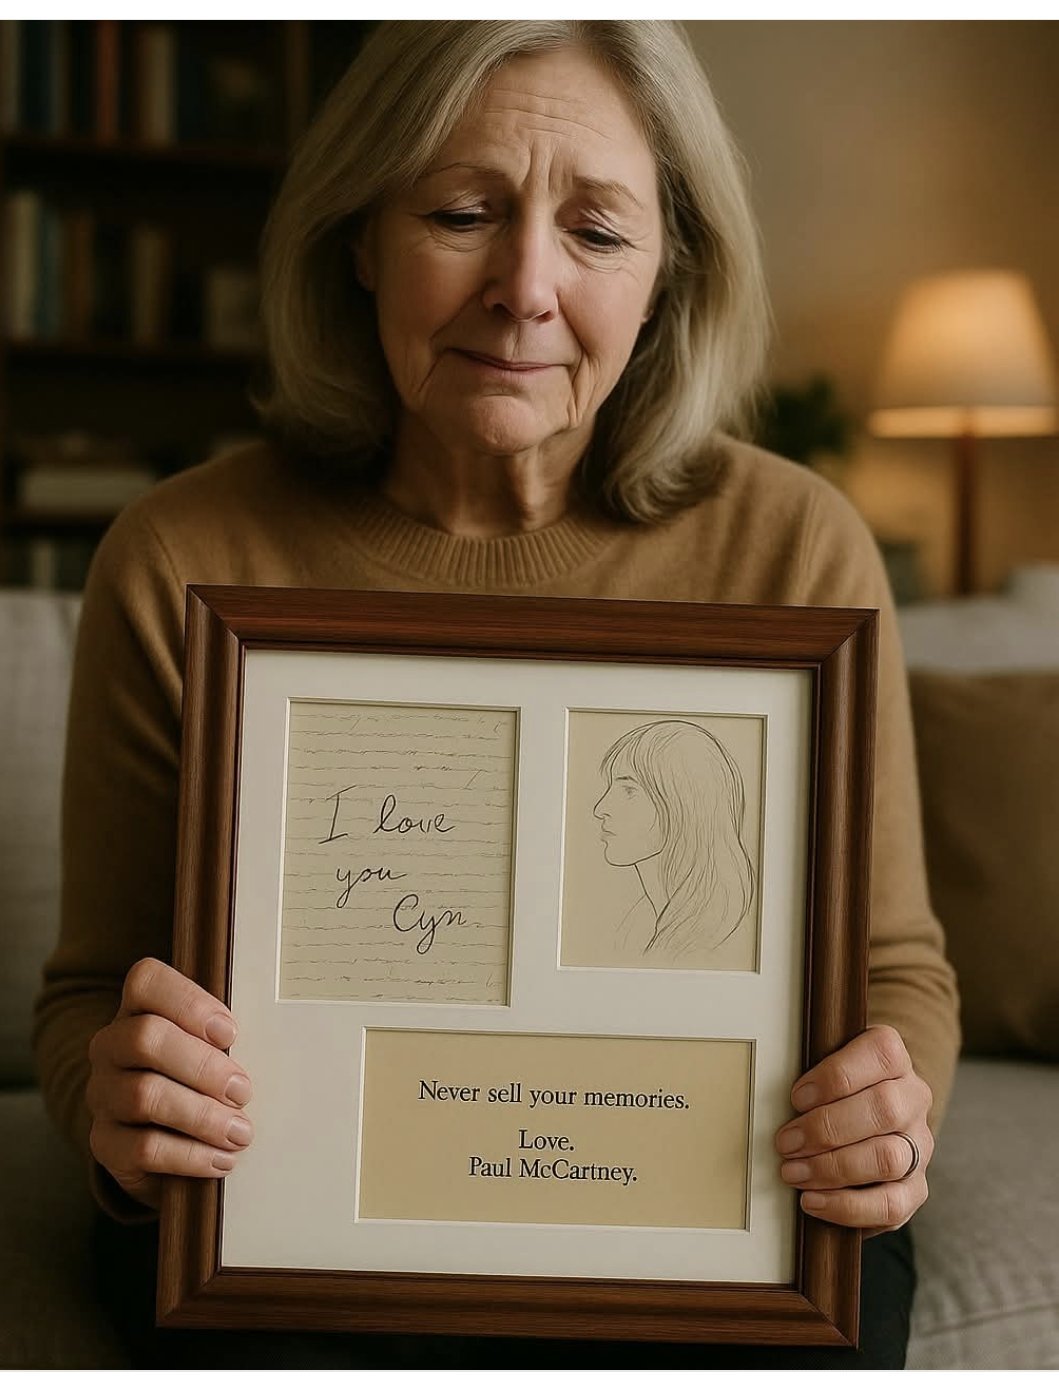 I love
you
Cyn
Never sell your memories.
Love.
Paul McCartney.